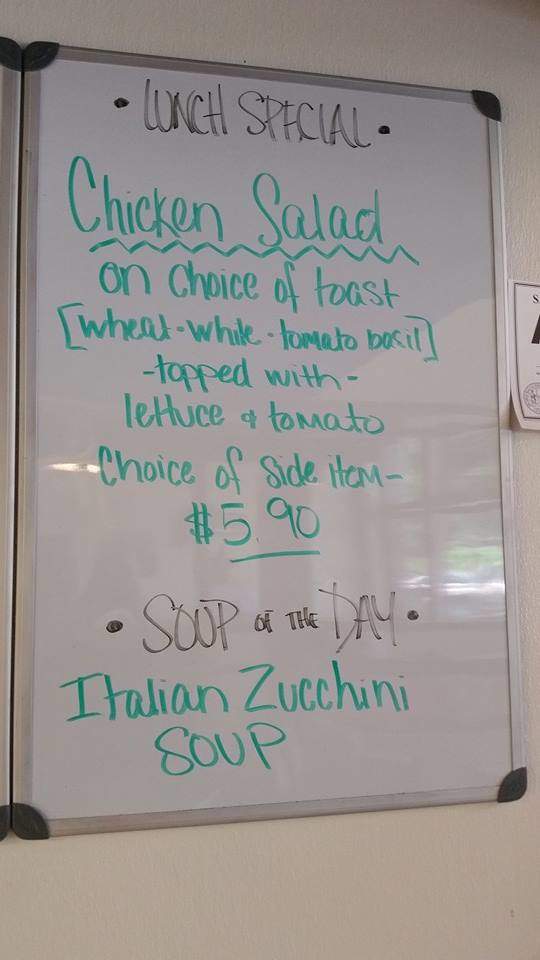 • LUNCH SPECIAL •
Chicken Salad
on choice of toast
[wheat - white - tomato basil]
- topped with -
lettuce & tomato
Choice of side item -
$5.90
• SOUP OF THE DAY •
Italian Zucchini
SOUP